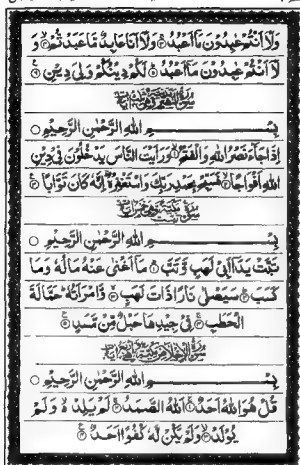 وَلَآ اَنْتُمْ عٰبِدُوْنَ مَآ اَعْبُدُ ۚ وَلَآ اَنَا عَابِدٌ مَّا عَبَدْتُّمْ ۙ وَ
لَآ اَنْتُمْ عٰبِدُوْنَ مَآ اَعْبُدُ ۗ لَكُمْ دِيْنُكُمْ وَلِيَ دِيْنِ
بِسْمِ اللهِ الرَّحْمٰنِ الرَّحِيْمِ
اِذَا جَآءَ نَصْرُ اللهِ وَالْفَتْحُ ۙ وَرَاَيْتَ النَّاسَ يَدْخُلُوْنَ فِيْ دِيْنِ
اللهِ اَفْوَاجًا ۙ فَسَبِّحْ بِحَمْدِ رَبِّكَ وَاسْتَغْفِرْهُ ۚ اِنَّهٗ كَانَ تَوَّابًا
بِسْمِ اللهِ الرَّحْمٰنِ الرَّحِيْمِ
تَبَّتْ يَدَآ اَبِيْ لَهَبٍ وَّتَبَّ ۗ مَآ اَغْنٰى عَنْهُ مَالُهٗ وَمَا
كَسَبَ ۗ سَيَصْلٰى نَارًا ذَاتَ لَهَبٍ ۚ وَّامْرَاَتُهٗ ۗ حَمَّالَةَ
الْحَطَبِ ۚ فِيْ جِيْدِهَا حَبْلٌ مِّنْ مَّسَدٍ
بِسْمِ اللهِ الرَّحْمٰنِ الرَّحِيْمِ
قُلْ هُوَ اللهُ اَحَدٌ ۚ اَللهُ الصَّمَدُ ۚ لَمْ يَلِدْ ۙ وَلَمْ
يُوْلَدْ ۙ وَلَمْ يَكُنْ لَّهٗ كُفُوًا اَحَدٌ